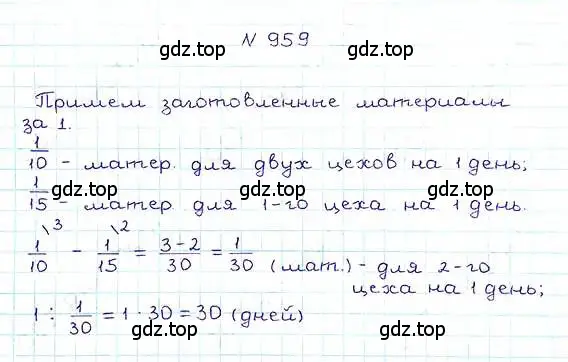 N 959
gdz.top gdz.top
Примем заготовленные материалы
за 1.
gdz.top gdz.top
1/10 - матер. для двух цехов на 1 день;
gdz.top gdz.top
1/15 - матер. для 1-го цеха на 1 день.
1/10 \3 - 1/15 \2 = 3-2/30 = 1/30 (мат.) - для 2-го
цеха на 1 день;
gdz.top gdz.top
1 : 1/30 = 1 · 30 = 30 (дней)
gdz.top gdz.top